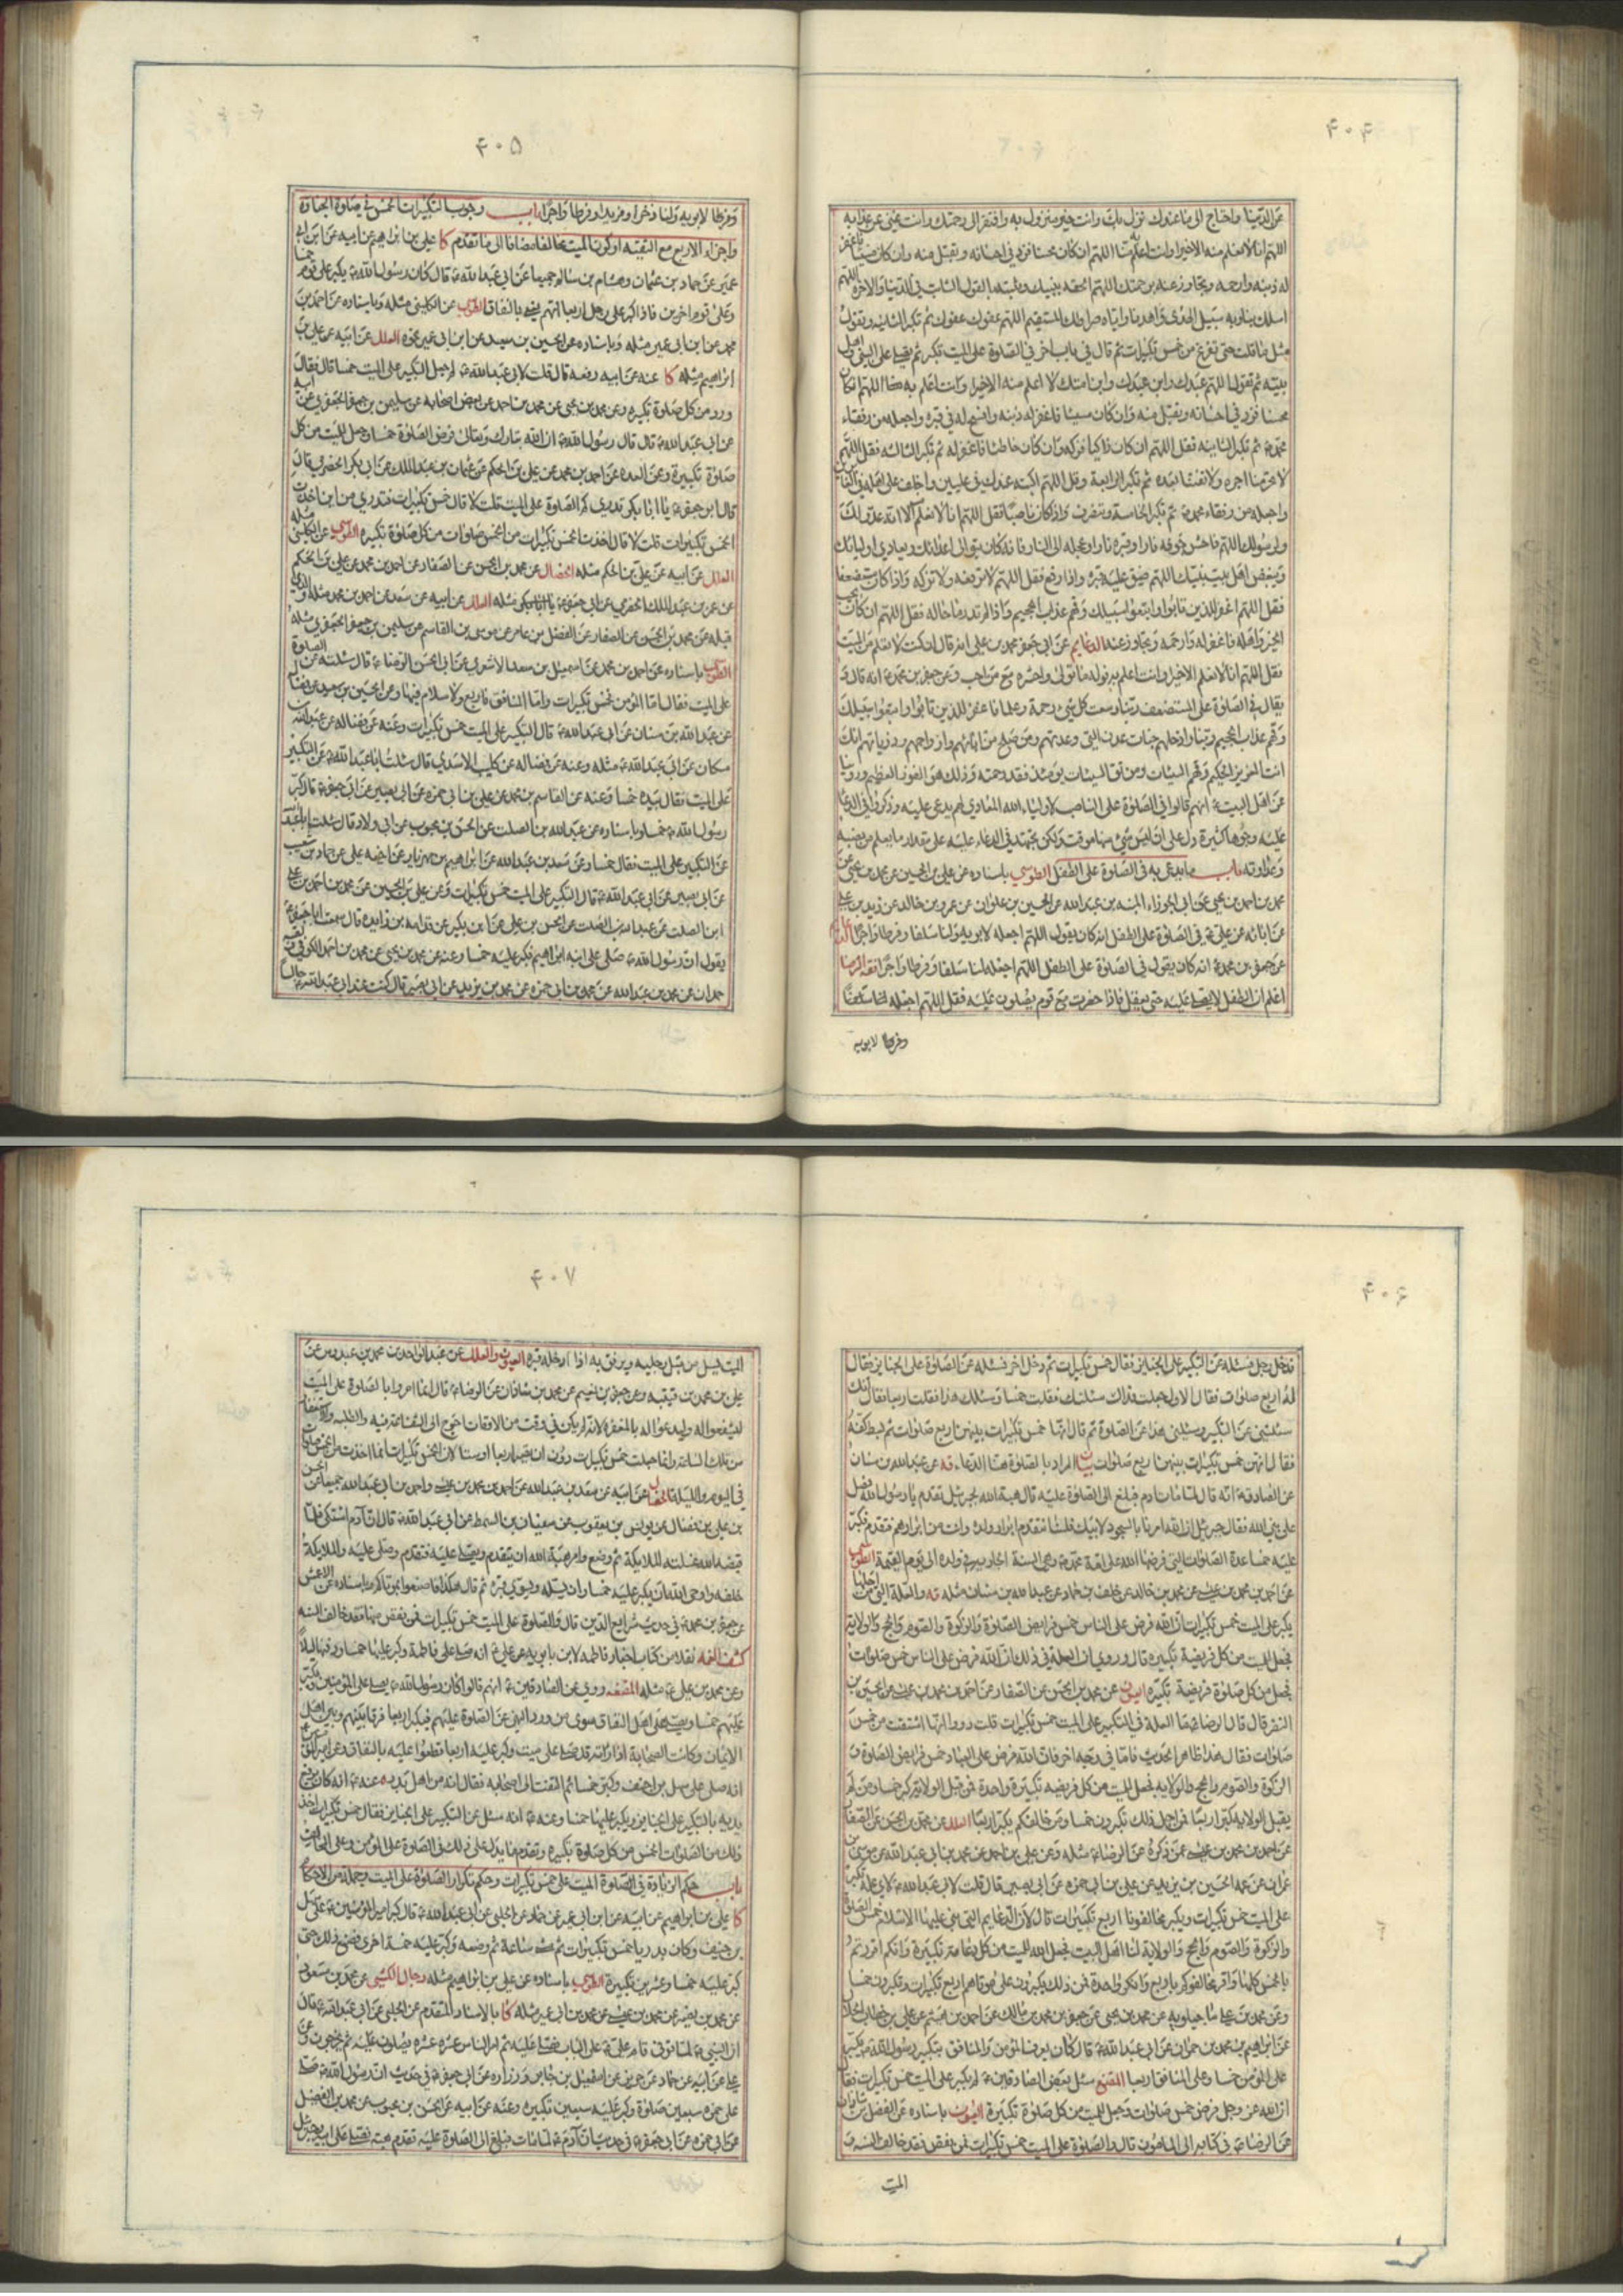 ۴۰۴
عن الدنيا واحتاج الى ما عندك نزل بك وانت خير منزول به وافتقر الى رحمتك وانت غني عن عذابه
اللهم انا لا نعلم منه الا خيرا وانت اعلم به منا اللهم ان كان محسنا فزد في احسانه وتقبل منه وان كان مسيئا فاغفر
له ذنبه وارحمه وتجاوز عنه برحمتك اللهم الحقه بنبيك وثبته بالقول الثابت في الدنيا والاخرة اللهم
اسلك بنا وبه سبيل الهدى واهدنا واياه صراطك المستقيم اللهم عفوك عفوك ثم تكبر الثانية وتقول
مثل ما قلت حتى تفرغ من خمس تكبيرات ثم قال في باب اخر في الصلوة على الميت تكبر ثم يصلي على النبي واهل
بيته ثم تقول اللهم عبدك وابن عبدك وابن امتك لا اعلم منه الا خيرا وانت اعلم به منا اللهم ان كان
محسنا فزد في احسانه وتقبل منه وان كان مسيئا فاغفر له ذنبه وافسح له في قبره واجعله من رفقاء
محمد ثم تكبر الثانية فقل اللهم ان كان زاكيا فزكه وان كان خاطئا فاغفر له ثم تكبر الثالثة فقل اللهم
لا تحرمنا اجره ولا تفتنا بعده ثم تكبر الرابعة وقل اللهم اكتبه عندك في عليين واخلف على اهله في الغابرين
واجعله من رفقاء محمد ثم تكبر الخامسة وتنصرف واذا كان ناصبا فقل اللهم انا لا نعلم الا انه عدو لك
ولرسولك اللهم فاحش جوفه نارا وقبره نارا وعجله الى النار فانه كان يتولى اعدائك ويعادي اوليائك
ويبغض اهل بيت نبيك اللهم ضيق عليه قبره واذا رفع فقل اللهم لا ترفعه ولا تزكه واذا كان مستضعفا
فقل اللهم اغفر للذين تابوا واتبعوا سبيلك وقهم عذاب الجحيم واذا لم تدر ما حاله فقل اللهم ان كان يحب
الخير واهله فاغفر له وارحمه وتجاوز عنه الدعايم عن ابي جعفر محمد بن علي انه قال ان كنت لا تعلم من الميت
فقل اللهم انا لا نعلم الا خيرا وانت اعلم به فوله ما تولى واحشره مع من احب وعن جعفر بن محمد انه قال
يقال في الصلوة على المستضعف ربنا وسعت كل شيء رحمة وعلما فاغفر للذين تابوا واتبعوا سبيلك
وقهم عذاب الجحيم ربنا وادخلهم جنات عدن التي وعدتهم ومن صلح من ابائهم وازواجهم وذرياتهم انك
انت العزيز الحكيم وقهم السيئات ومن تق السيئات يومئذ فقد رحمته وذلك هو الفوز العظيم وروينا
عن اهل البيت انهم قالوا في الصلوة على الناصب لاولياء الله المعادي لهم يدعى عليه وذكروا في الدعاء
عليه وجوها كثيرة دل على ان ليس شيء منها موقت ولكن يجتهد في الدعاء عليه على مقدار ما يعلم من نصبه
وعداوته باب ما يدعى به في الصلوة على الطفل الطوسي باسناده عن علي بن الحسين عن محمد بن يحيى عن
محمد بن احمد بن يحيى عن ابي الجوزاء المنبه بن عبد الله عن الحسين بن علوان عن عمرو بن خالد عن زيد بن علي
عن ابائه عن علي في الصلوة على الطفل انه كان يقول اللهم اجعله لابويه ولنا سلفا وفرطا واجرا
عن جعفر بن محمد انه كان يقول في الصلوة على الطفل اللهم اجعله لنا سلفا وفرطا واجرا فقه الرضا
اعلم ان الطفل لا يصلى عليه حتى يعقل فاذا حضرت مع قوم يصلون عليه فقل اللهم اجعله لنا سلفا
وفرطا لابويه
۴۰۵
وفرطا لابويه ولنا ذخرا ومزيدا وفرطا واجرا باب وجوب التكبيرات الخمس في صلوة الجنازة
واجزاء الاربع مع التقية او كون الميت مخالفا مضافا الى ما تقدم كا علي بن ابراهيم عن ابيه عن ابن ابي
عمير عن حماد بن عثمان وهشام بن سالم جميعا عن ابي عبد الله قال كان رسول الله يكبر على قوم خمسا
وعلى قوم اخرين فاذا كبر على رجل اربعا اتهم يعني بالنفاق الطوسي عن الكليني مثله وباسناده عن احمد بن
محمد عن ابن ابي عمير مثله وباسناده عن الحسين بن سعيد عن ابن ابي عمير نحوه العلل عن ابيه عن علي بن
ابراهيم مثله كا عنه عن ابيه رفعه قال قلت لابي عبد الله لم جعل التكبير على الميت خمسا قال فقال
ورد من كل صلوة تكبيرة وعن محمد بن يحيى عن محمد بن احمد عن بعض اصحابه عن سليمن بن جعفر الجعفري عن ابيه
عن ابي عبد الله قال قال رسول الله ان الله تبارك وتعالى فرض الصلوة خمسا وجعل للميت من كل
صلوة تكبيرة وعن العدة عن احمد بن محمد عن علي بن الحكم عن عثمان بن عبد الملك عن ابي بكر الحضرمي قال
قال ابو جعفر يا ابا بكر تدري كم الصلوة على الميت قلت لا قال خمس تكبيرات فتدري من اين اخذت
الخمس تكبيرات قلت لا قال اخذت الخمس تكبيرات من الخمس صلوات من كل صلوة تكبيرة الطوسي عن الكليني مثله
العلل عن ابيه عن علي بن الحكم مثله الخصال عن محمد بن الحسن عن الصفار عن احمد بن محمد عن علي بن الحكم
قبله عن محمد بن الحسن عن الصفار عن الفضل بن عامر عن موسى بن القاسم عن سليمن بن جعفر الجعفري مثله
الطوسي باسناده عن احمد بن محمد عن اسمعيل بن سعد الاشعري عن ابي الحسن الرضا قال سئلته عن الصلوة
على الميت فقال اما المؤمن فخمس تكبيرات واما المنافق فاربع ولا سلام فيها وعن الحسين بن سعيد عن فضالة
عن عبد الله بن سنان عن ابي عبد الله قال التكبير على الميت خمس تكبيرات وعنه عن فضاله عن عبد الله بن
مسكان عن ابي عبد الله مثله وعنه عن فضاله عن كليب الاسدي قال سئلت ابا عبد الله عن التكبير
على الميت فقال بيده خمسا وعنه عن القاسم بن محمد عن علي بن ابي حمزه عن ابي بصير عن ابي جعفر قال كبر
رسول الله خمسا وباسناده عن عبد الله بن الصلت عن الحسن بن محبوب عن ابي ولاد قال سئلت ابا عبد الله
عن التكبير على الميت فقال خمسا وعن سعد بن عبد الله عن ابراهيم بن مهزيار عن اخيه علي عن حماد بن شعيب
عن ابي بصير عن ابي عبد الله قال التكبير على الميت خمس تكبيرات وعن علي بن الحسين عن محمد بن احمد بن علي
ابن الصلت عن عبد الله بن الصلت عن الحسن بن علي عن ابن بكير عن قدامه بن زايده قال سمعت ابا جعفر
يقول ان رسول الله صلى على ابنه ابراهيم فكبر عليه خمسا وعنه عن محمد بن يحيى عن محمد بن احمد الكوفي
حمدان عن محمد بن عبد الله عن محمد بن ابي حمزه عن محمد بن يزيد عن ابي بصير قال كنت عند ابي عبد الله جالسا
۴۰۶
فدخل رجل فسئله عن التكبير على الجنايز فقال خمس تكبيرات ثم دخل اخر فسئله عن الصلوة على الجنايز فقال
له اربع صلوات فقال الاول جعلت فداك سئلتك فقلت خمسا وسئلك هذا فقلت اربعا فقال انك
سئلتني عن التكبير وسئلني هذا عن الصلوة ثم قال انها خمس تكبيرات بينهن اربع صلوات ثم بسط كفه
فقال انهن خمس تكبيرات بينهن اربع صلوات بيان المراد بالصلوة هنا الدعاء يه عن عبد الله بن سنان
عن الصادق انه قال لما مات ادم فبلغ الى الصلوة عليه قال هبة الله لجبرئيل تقدم يا رسول الله فصل
على نبي الله فقال جبرئيل ان الله امرنا بالسجود لابيك فلسنا نتقدم ابرار ولده وانت من ابرهم فتقدم فكبر
عليه خمسا عدة الصلوات التي فرضها الله على امة محمد وهي السنة الجارية في ولده الى يوم القيمة الطوسي
عن احمد بن محمد بن عيسى عن محمد بن خالد عن خلف بن حماد عن عبد الله بن سنان مثله يه والعلة التي من اجلها
يكبر على الميت خمس تكبيرات ان الله فرض على الناس خمس فرايض الصلوة والزكوة والصوم والحج والولاية
فجعل للميت من كل فريضة تكبيرة قال وروي ان العلة في ذلك ان الله فرض على الناس خمس صلوات
فجعل من كل صلوة فريضة تكبيرة العيون عن محمد بن الحسن عن الصفار عن احمد بن محمد بن عيسى عن الحسين بن
النضر قال قال الرضا ما العلة في التكبير على الميت خمس تكبيرات قلت رووا انها اشتقت من خمس
صلوات فقال هذا ظاهر الحديث فاما في وجه اخر فان الله فرض على العباد خمس فرايض الصلوة و
الزكوة والصوم والحج والولاية فجعل للميت من كل فريضة تكبيرة واحدة فمن قبل الولاية كبر خمسا ومن لم
يقبل الولاية كبر اربعا فمن اجل ذلك تكبرون خمسا ومن خالفكم يكبر اربعا العلل عن محمد بن الحسن عن الصفار
عن احمد بن محمد بن عيسى عمن ذكره عن الرضا مثله وعن علي بن احمد عن محمد بن ابي عبد الله عن موسى بن
عمران عن عمه الحسين بن يزيد عن علي بن ابي حمزه عن ابي بصير قال قلت لابي عبد الله لاي علة تكبر
على الميت خمس تكبيرات ويكبر مخالفونا اربع تكبيرات قال لان الدعايم التي بني عليها الاسلام خمس الصلوة
والزكوة والصوم والحج والولاية لنا اهل البيت فجعل الله للميت من كل دعامة تكبيرة وانكم اقررتم
بالخمس كلها واقر مخالفوكم باربع وانكروا واحدة فمن ذلك يكبرون على موتاهم اربع تكبيرات وتكبرون خمسا
وعن محمد بن علي ماجيلويه عن محمد بن يحيى عن جعفر بن محمد بن مالك عن احمد بن هيثم عن علي بن خطاب الخلال
عن ابراهيم بن محمد بن حمران عن ابي عبد الله قال كان يعرف المؤمن والمنافق بتكبير رسول الله يكبر
على المؤمن خمسا وعلى المنافق اربعا المقنع سئل بعض الصادقين لم يكبر على الميت خمس تكبيرات فقال
ان الله عز وجل فرض خمس صلوات فجعل للميت من كل صلوة تكبيرة العيون باسناده عن الفضل بن شاذان
عن الرضا في كتابه الى المامون قال والصلوة على الميت خمس تكبيرات فمن نقص فقد خالف السنة و
الميت
۴۰۷
الميت يسل من قبل رجليه ويرفق به اذا ادخل قبره العيون والعلل عن عبد الواحد بن محمد بن عبدوس عن
علي بن محمد بن قتيبه وعن جعفر بن نعيم عن محمد بن شاذان عن الرضا قال انما امروا بالصلوة على الميت
ليشفعوا له وليدعوا له بالمغفرة لانه لم يكن في وقت من الاوقات احوج الى الشفاعة فيه والطلبه والاستغفار
من تلك الساعة وانما جعلت خمس تكبيرات دون ان تصير اربعا او ستا لان الخمس تكبيرات انما اخذت من الخمس صلوات
في اليوم والليلة الخصال عن ابيه عن سعد بن عبد الله عن احمد بن محمد بن عيسى واحمد بن ابي عبد الله جميعا عن الحسن
بن علي بن فضال عن يونس بن يعقوب عن سفيان بن السمط عن ابي عبد الله قال ان آدم اشتكى
قبضه الله فغسلته الملائكة ثم وضع وامر هبة الله ان يتقدم ويصلي عليه فتقدم وصلى عليه والملائكة
خلفه واوحى الله ان يكبر عليه خمسا وان يسله ويسوي قبره ثم قال هكذا فاصنعوا بموتاكم وباسناده عن الاعمش
عن جعفر بن محمد في حديث شرايع الدين قال والصلوة على الميت خمس تكبيرات فمن نقص منها فقد خالف السنة
كشف الغمة نقلا من كتاب اخبار فاطمة لابن بابويه عن علي انه صلى على فاطمة وكبر عليها خمسا ودفنها ليلا
وعن محمد بن علي مثله المقنعه وروي عن الصادقين انهم قالوا كان رسول الله يصلي على المؤمنين ويكبر
عليهم خمسا ويصلي على اهل النفاق سوى من ورد النهي عن الصلوة عليهم فيكبر اربعا فرقا بينهم وبين اهل
الايمان وكانت الصحابة اذا راته قد صلى على ميت وكبر عليه اربعا قطعوا عليه بالنفاق وعن امير المؤمنين
انه صلى على سهل بن حنيف وكبر خمسا ثم التفت الى اصحابه فقال انه من اهل بدر وعنه انه كان يرفع
يديه بالتكبير على الجنايز ويكبر عليها خمسا وعنه انه سئل عن التكبير على الجنايز فقال خمس تكبيرات اخذ
ذلك من الصلوات الخمس من كل صلوة تكبيرة وتقدم ما يدل على ذلك في الصلوة على المؤمن وعلى المخالف
باب حكم الزيادة في الصلوة الميت على خمس تكبيرات وحكم تكرار الصلوة على الميت وجملة من الاحكام
كا علي بن ابراهيم عن ابيه عن ابن ابي عمير عن حماد عن الحلبي عن ابي عبد الله قال كبر امير المؤمنين على سهل
بن حنيف وكان بدريا خمس تكبيرات ثم مشى ساعة ثم وضعه وكبر عليه خمسة اخرى فصنع ذلك حتى
كبر عليه خمسا وعشرين تكبيرة الطوسي باسناده عن علي بن ابراهيم مثله رجال الكشي عن محمد بن مسعود
عن محمد بن نصير عن محمد بن عيسى عن محمد بن ابي عمير مثله كا بالاسناد المتقدم عن الحلبي عن ابي عبد الله قال
ان النبي لما توفي قام علي على الباب فصلى عليه ثم امر الناس عشره عشره يصلون عليه ثم يخرجون وعن
علي عن ابيه عن حماد عن حريز عن اسمعيل بن جابر وزراره عن ابي جعفر في حديث ان رسول الله صلى
على حمزه سبعين صلوة وكبر عليه سبعين تكبيره وعنه عن ابيه عن الحسن بن محبوب عن محمد بن الفضيل
عن ابي حمزه عن ابي جعفر في حديث آدم لما مات فبلغ الى الصلوة عليه تقدم هبة